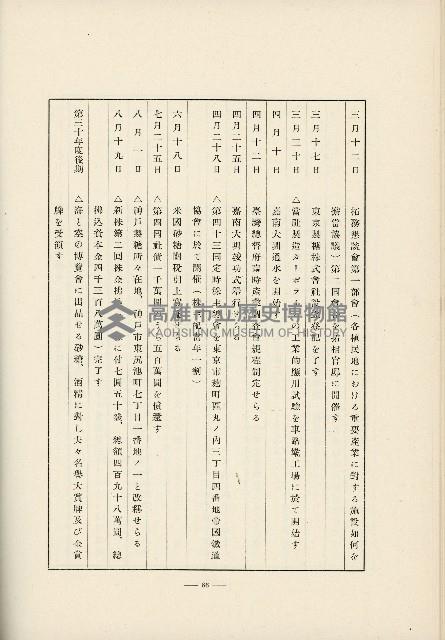 三月十二日　拓務懇談會第一部會(各植民地における重要産業に對する施設如何を
業當議議)第一回會議を拓相官邸に開催す
三月十七日　東京製糖株式會社設立登記を了す
三月二十日　△當社製造タービンの工業的應用試驗を車路墘工場に於て開始す
四月十日　嘉南大圳通水を開始す
四月十二日　臺灣總督府臨時産業調査會規程制定せらる
四月二十五日　嘉南大圳竣功式擧行せらる
四月二十八日　△第四十三回定時株主總會を東京市麴町區丸ノ内三丁目四番地帝國鐵道
協會に於て開催(株主配當年一割)
六月十八日　米國砂糖關稅引上實施せらる
七月二十五日　△第四回社債一千萬圓のうち五百萬圓を償還す
八月一日　△神戸製糖所々在地、神戸市東尻池町七丁目一番地ノ一と改稱せらる
八月十九日　△新株第二回株金拂込に付七圓五十錢、總額四百九十八萬圓、總
拂込資本金四千三百八萬圓)完了す
第三十年度後期　△海と空の博覽會に出品せる砂糖、酒精に對し夫々名譽大賞牌及び金賞
牌を受領す
高雄市立歷史博物館
KAOHSIUNG MUSEUM OF HISTORY
— 66 —